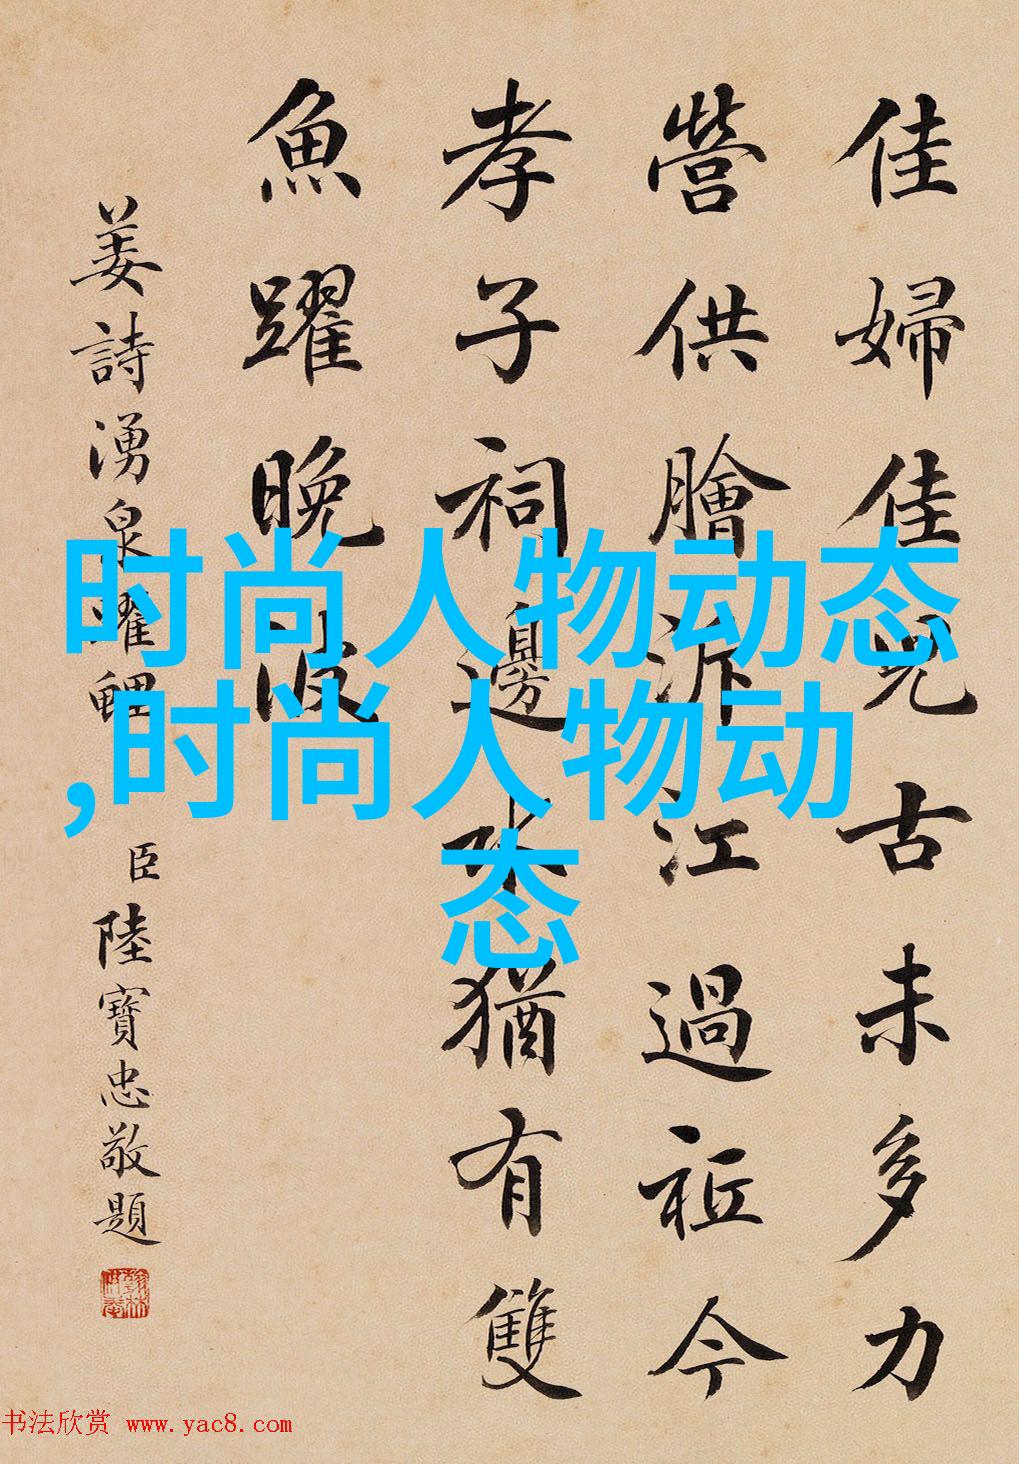 佳婦佳兒古未多力
營供膾泝江過祗今
孝子祠邊水猶有雙
魚躍晚波
姜詩湧泉躍鯉
臣陸寶忠敬題
时尚人物动态
,时尚人物动
态
书法欣赏 www.yac8.com